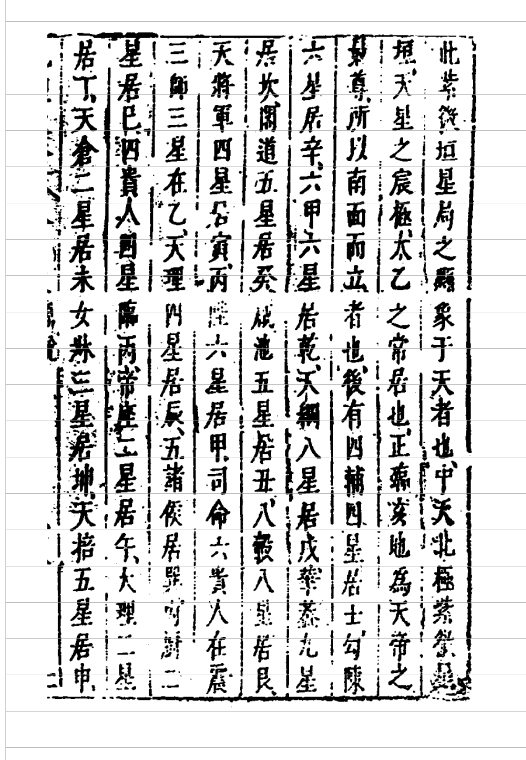 此紫微垣星局之顯象于天者也中天北極紫微星
垣天星之宸極太乙之常居也正臨亥地為天帝之
最尊所以南面而立者也後有四輔四星居壬勾陳
六星居辛六甲六星居乾天綱八星居戊華蓋九星
居坎閣道五星居癸咸池五星居丑八穀八星居艮
天將軍四星居寅丙陛六星居甲司命六貴人在震
三師三星在乙天理四星居辰五諸侯居巽內廚二
星居巳四貴人四星臨丙帝座二星居午大理二星
居丁天倉二星居未女牀三星居坤天掊五星居申